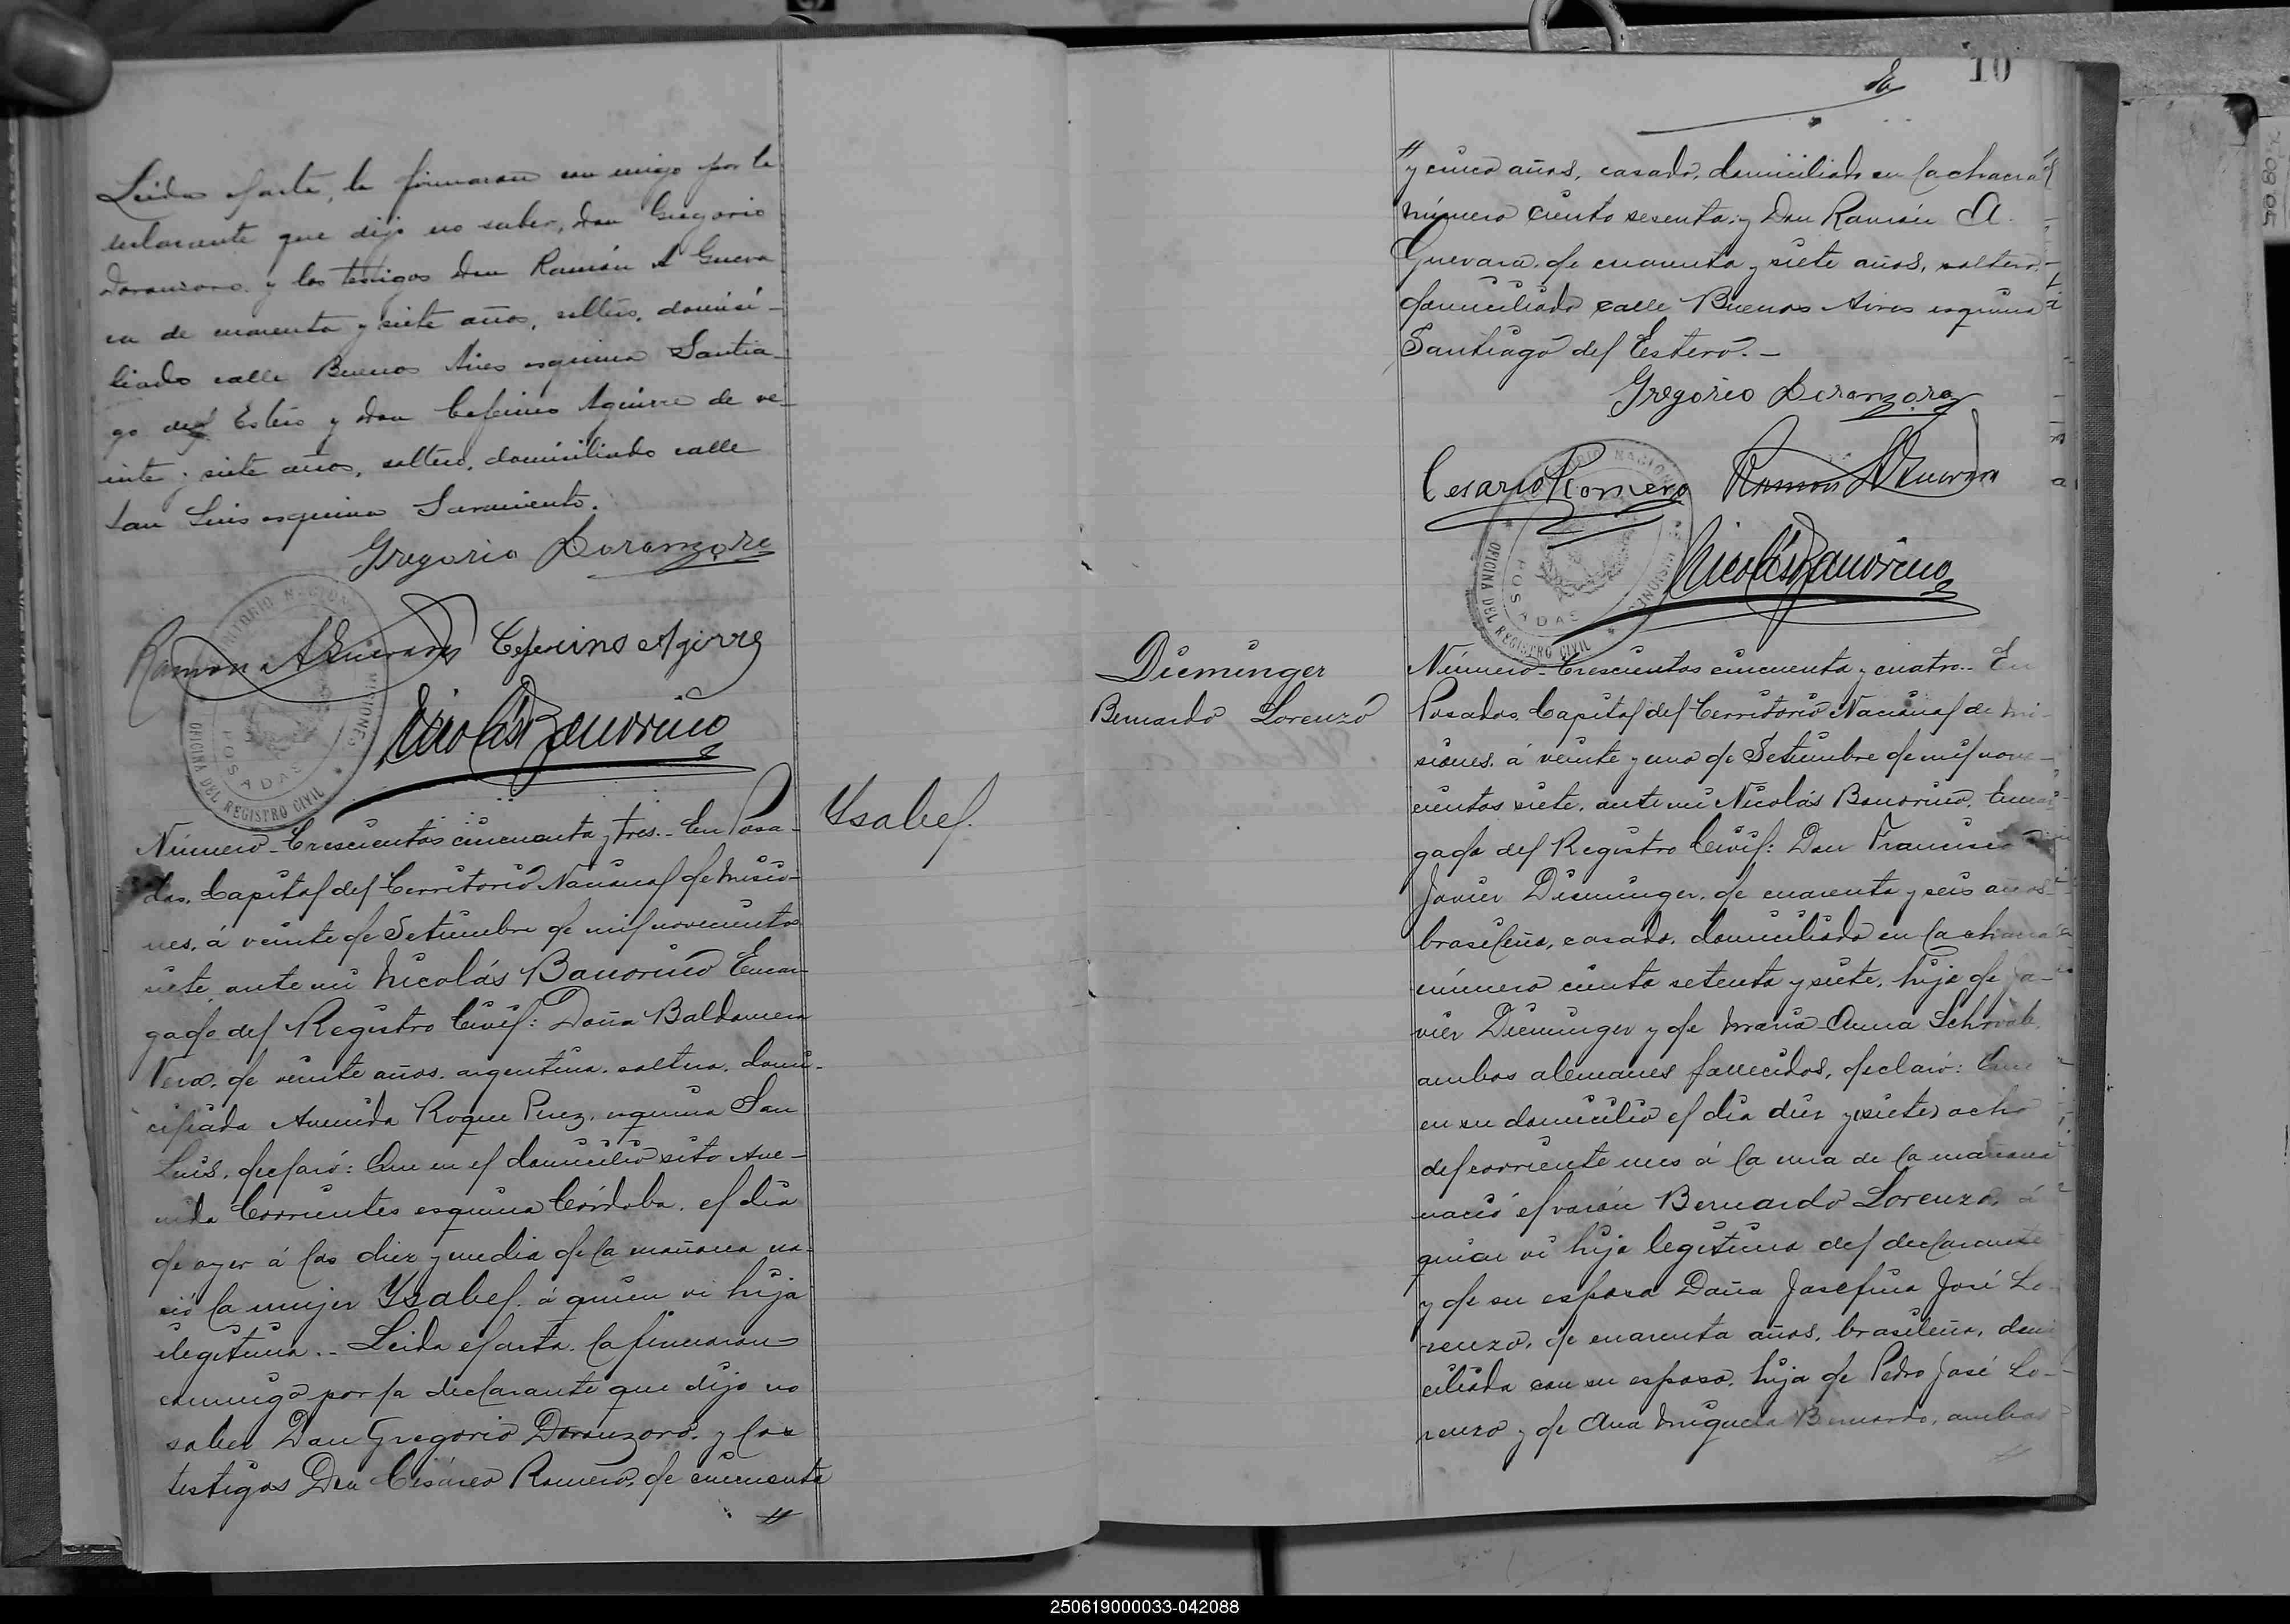 Leida el acta, la firmaron con migo por la
declarante que dijo no saber, Don Gregorio
Doronzoro y los testigos Don Ramón A Gueva
ra de cuarenta y siete años, soltero, domici-
liado calle Buenos Aires esquina Santia-
go del Estero y Don Ceferino Aguirre de ve-
inte y siete años, soltero, domiciliado calle
San Luis esquina Sarmiento.
Gregorio Doronzoro
Ramon A Guevara Ceferino Agirre
Nicolás Bonorino
TERRITORIO NACIONAL MISIONES
POSADAS
OFICINA DEL REGISTRO CIVIL
Ysabel.
Número Trescientos cincuenta y tres.- En Posa-
das, Capital del Territorio Nacional de Misio-
nes, á veinte de Setiembre de mil novecientos
siete, ante mi Nicolás Bonorino Encar-
gado del Registro Civil: Doña Baldomera
Vera, de veinte años, argentina, soltera, domi-
ciliada Avenida Roque Perez, esquina San
Luis, declaró: Que en el domicilio sito Ave-
nida Corrientes esquina Córdoba, el dia
de ayer á las diez y media de la mañana na-
ció la mujer Ysabel á quien vi hija
ilegitima.- Leida el acta, la firmaron
conmigo por la declarante que dijo no
saber Don Gregorio Doronzoro, y los
testigos Don Cesáreo Romero, de cincuenta
//
10
// y cinco años, casado, domiciliado en la chacra
número ciento sesenta y Don Ramón A.
Guevara, de cuarenta y siete años, soltero,
domiciliado calle Buenos Aires esquina
Santiago del Estero.-
Gregorio Doronzoro
Cesareo Romero Ramon A Guevara
Nicolás Bonorino
TERRITORIO NACIONAL MISIONES
POSADAS
OFICINA DEL REGISTRO CIVIL
Dieminger
Bernardo Lorenzo
Número Trescientos cincuenta y cuatro.- En
Posadas, Capital del Territorio Nacional de Mi-
siones, á veinte y uno de Setiembre de mil nove-
cientos siete, ante mi Nicolás Bonorino, Encar-
gado del Registro Civil: Don Francisco
Javier Dieminger, de cuarenta y seis años
brasileño, casado, domiciliado en la chacra
número ciento setenta y siete, hijo de Ja-
vier Dieminger y de Maria Anna Schwab,
ambos alemanes fallecidos, declaró: Que
en su domicilio el dia diez y (siete) ocho
del corriente mes á la una de la mañana
nació el varón Bernardo Lorenzo, á
quien vi hijo legitimo del declarante
y de su esposa Doña Josefina José Lo-
renzo, de cuarenta años, brasileña, domi
ciliada con su esposo, hija de Pedro José Lo-
renzo y de Ana Miguela Bernardo, ambos
//
250619000033-042088